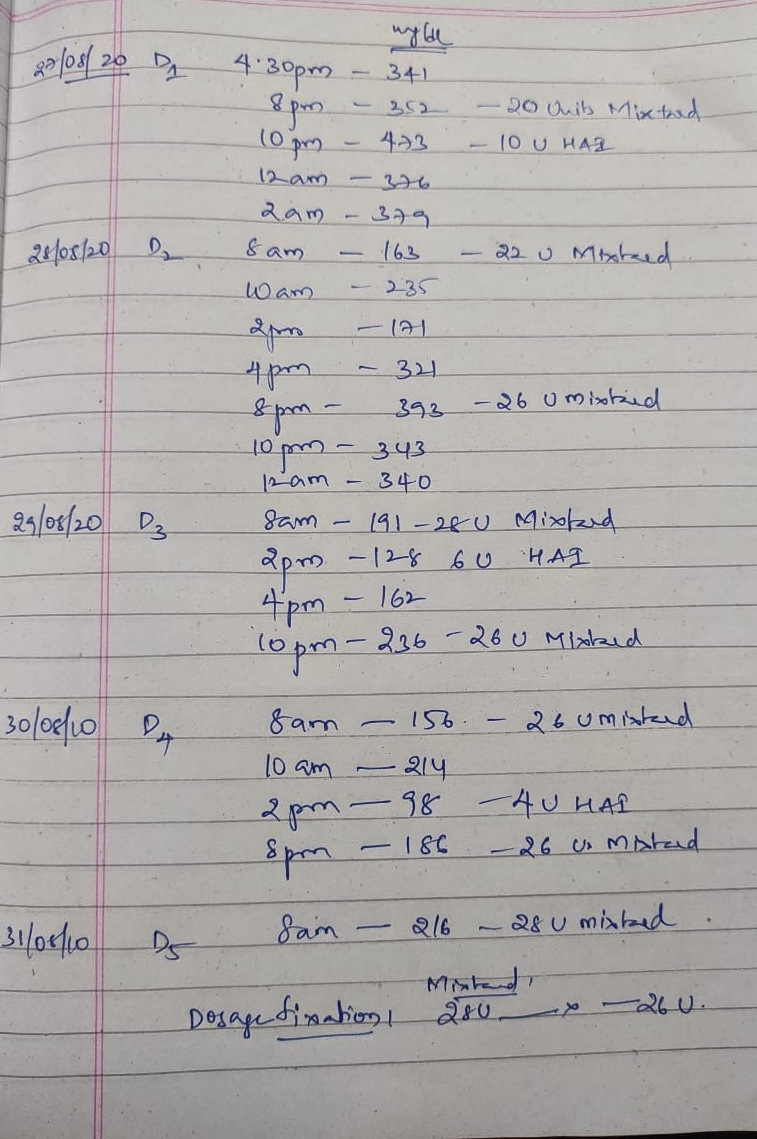 mg/dl
27/08/20 D1 4.30pm - 341
8pm - 352 - 20 Units Mixtard
10pm - 473 - 10 U HAI
12am - 376
2am - 379
28/08/20 D2 8am - 163 - 22 U Mixtard
10am - 235
2pm - 171
4pm - 321
8pm - 393 - 26 U mixtard
10pm - 343
12am - 340
29/08/20 D3 8am - 191 - 28 U Mixtard
2pm - 128 6U HAI
4pm - 162
10pm - 236 - 26 U Mixtard
30/08/20 D4 8am - 156. - 26 U mixtard
10am - 214
2pm - 98 - 4U HAI
8pm - 186 - 26 U. Mixtard
31/08/20 D5 8am - 216 - 28U mixtard.
Mixtard
Dosage fixation, 28U - x - 26 U.